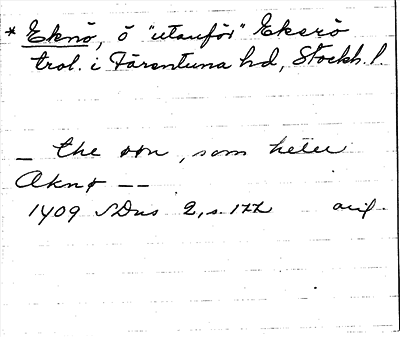 * Eknö, ö "utanför" Ekerö
trol. i Färentuna hd, Stockh. l.
_ the øøn, som heter
Aknø --
1409 SDns 2, s. 177 orig.